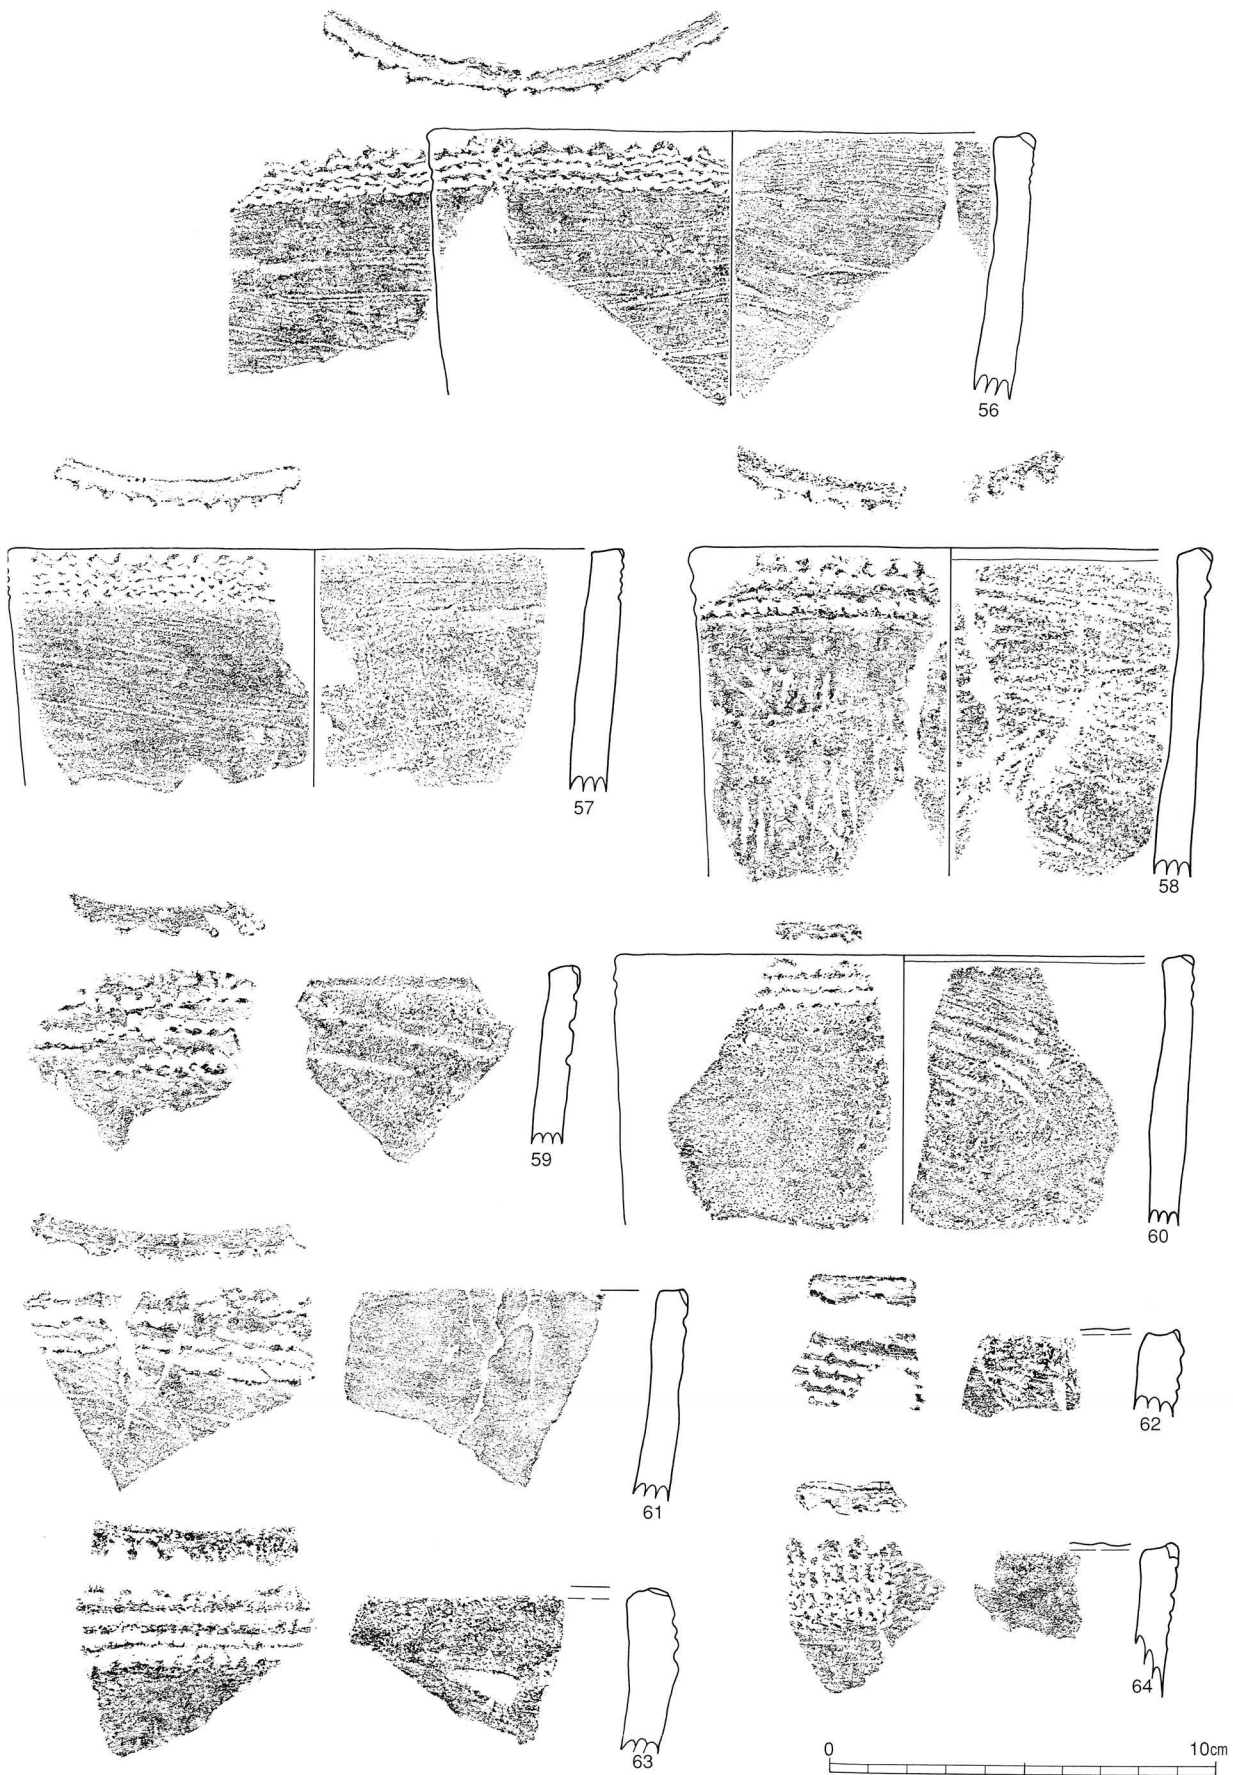 56
57
58
59
60
61
62
63
64
0 10cm